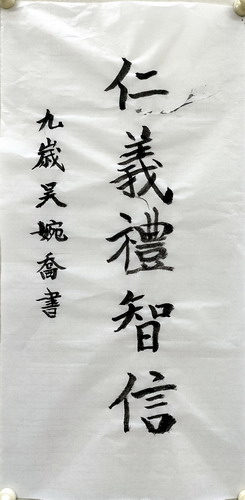 仁義禮智信
九歲吴婉喬書